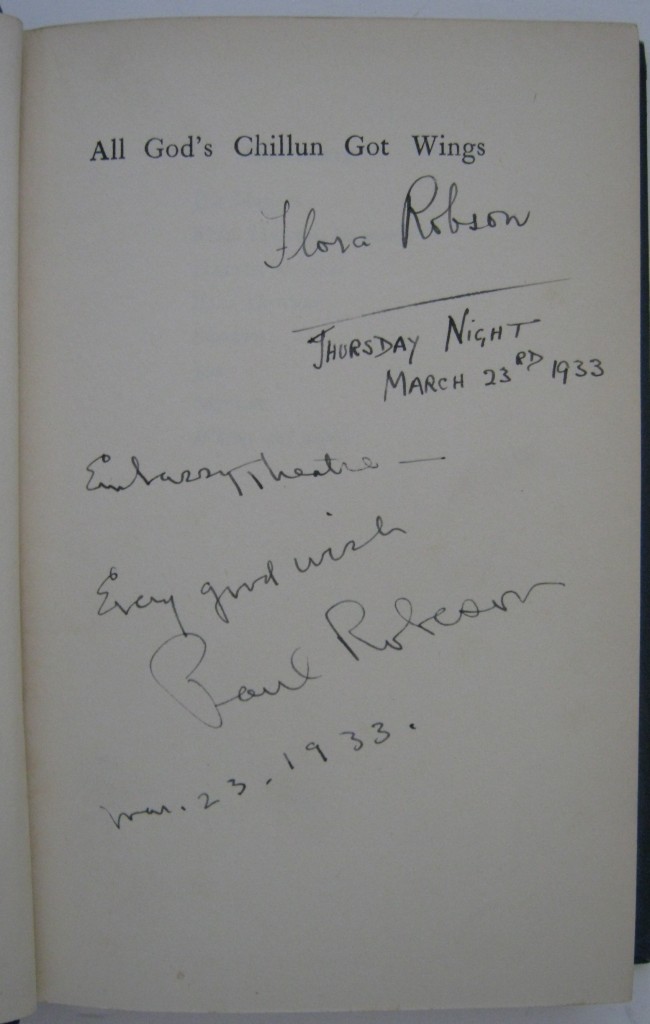 All God's Chillun Got Wings
Flora Robson
THURSDAY NIGHT
MARCH 23RD 1933
Embassy Theatre —
Every good wish
Paul Robeson
Mar. 23. 1933.